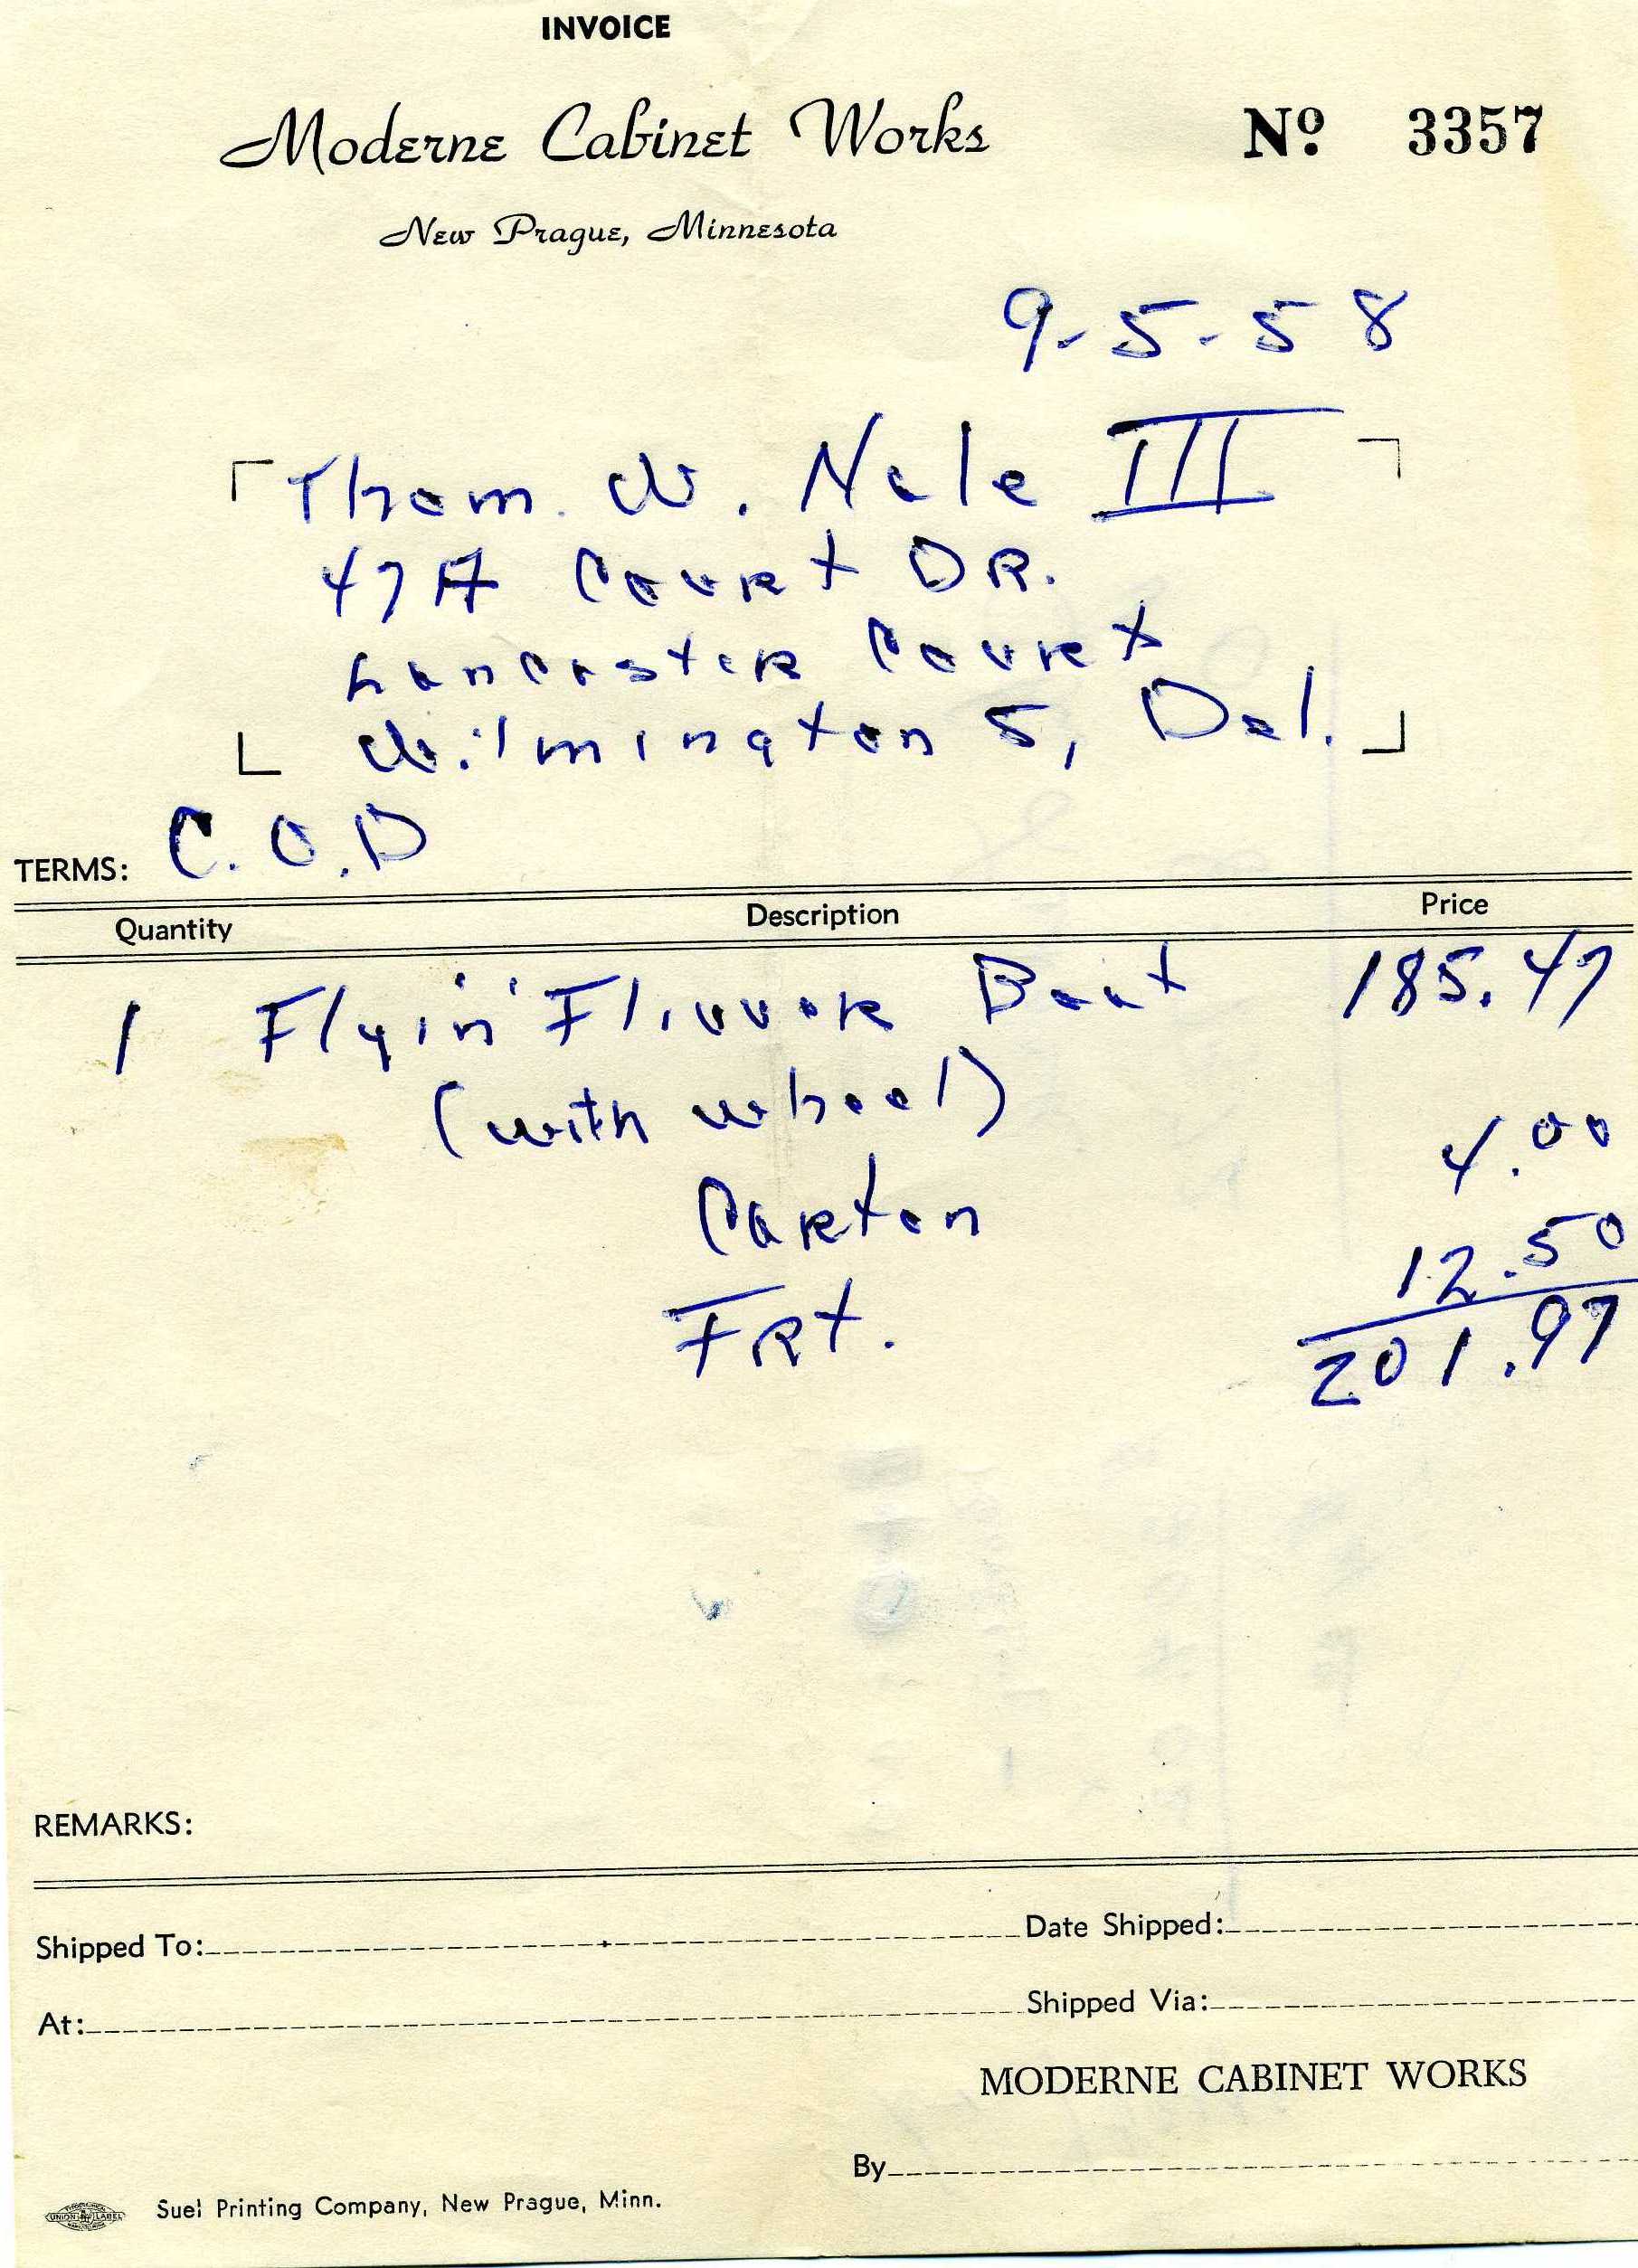 INVOICE
Moderne Cabinet Works
Nº 3357
New Prague, Minnesota
9-5-58
Thom. W. Nale III
47A Court DR.
Lancaster Court
Wilmington 5, Del.
TERMS: C.O.D
Quantity Description Price
1 Flyin' Flivver Boat 185.47
(with wheel)
4.00
Carton
12.50
FRt.
201.97
REMARKS:
Shipped To: Date Shipped:
At: Shipped Via:
MODERNE CABINET WORKS
By
Suel Printing Company, New Prague, Minn.